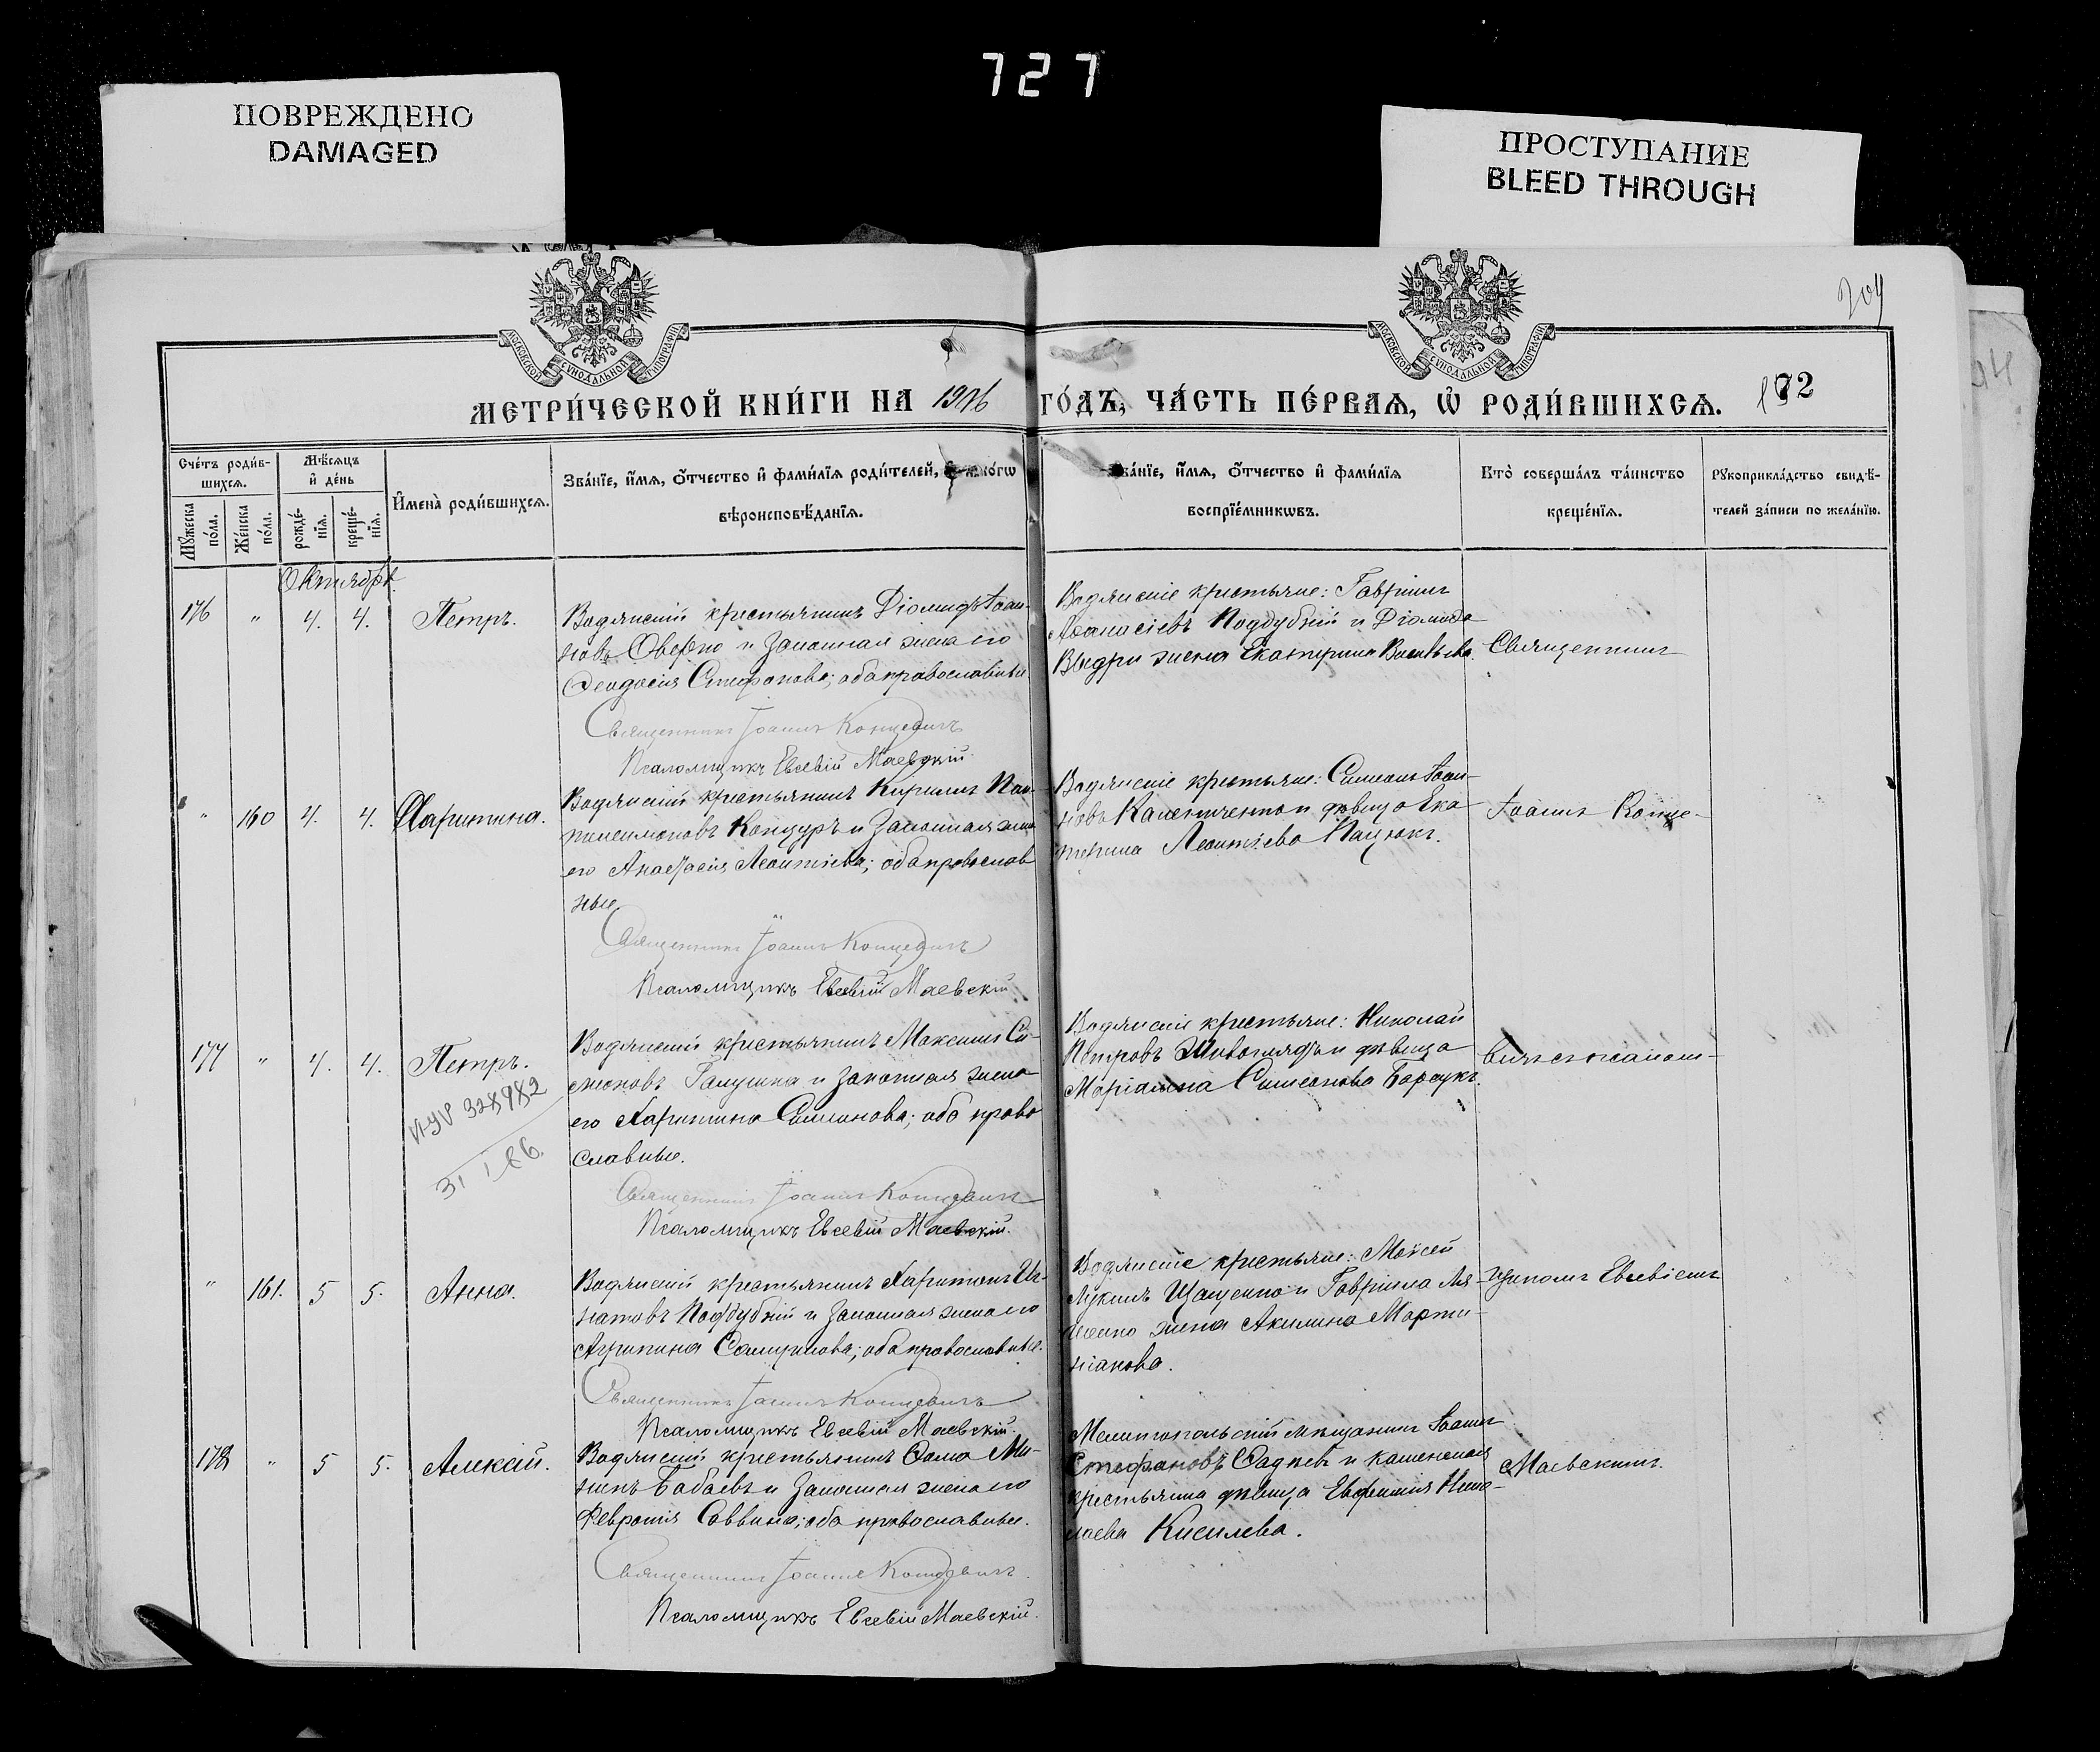 727
ПОВРЕЖДЕНО
DAMAGED
ПРОСТУПАНИЕ
BLEED THROUGH
МОСКОВСКОЙ СѴНОДАЛЬНОЙ ТИПОГРАФІИ
МОСКОВСКОЙ СѴНОДАЛЬНОЙ ТИПОГРАФІИ
204
МЕТРИ́ЧЕСКОЙ КНИ́ГИ НА 1906 ГО́ДЪ, ЧА́СТЬ ПЕ́РВАЯ, Ѡ҆ РОДИ́ВШИХСЯ.
72
Сче́тъ роди́в-
шихся.
Мѣ́сяцъ
и҆ де́нь
Мꙋ́жеска
по́ла.
Же́нска
по́ла.
рожде́-
нїѧ.
креще́-
нїѧ.
И҆мена̀ роди́вшихся.
Зва́нїе, и҆́мѧ, ѻ҆́тчество и҆ фами́лїѧ роди́телей,
вѣроисповѣ́данїѧ.
и҆́мѧ, ѻ҆́тчество и҆ фами́лїѧ
воспрїе́мникѡвъ.
Кто̀ соверша́лъ та́инство
креще́нїѧ.
Рꙋкоприкла́дство свидѣ́-
телей за́писи по жела́нїю.
Октябрь
176 " 4. 4. Петръ.
Водянскій крестьянинъ Діомидъ Іоан-
новъ Оверко и законная жена его
Ѳеодосія Стефанова; оба православные
Священникъ Іоаннъ Концевичъ
Псаломщикъ Евсевій Маевскій.
Водянскіе крестьяне: Гавріилъ
Аѳанасіевъ Поддубній и Діомида
Выдри жена Екатерина Васильева.
Священникъ
" 160 4. 4. Харитина.
Водянскій крестьянинъ Кириллъ Пан-
телеимоновъ Концуръ и законная жена
его Анастасія Леонтіева; оба православ
ные
Священникъ Іоаннъ Концевичъ
Псаломщикъ Евсевій Маевскій.
Водянскіе крестьяне: Симеонъ Іоан-
новъ и дѣвица Ека
терина Леонтіева Пацюкъ.
Іоаннъ Конце-
177 " 4. 4. Петръ.
328982
Водянскій крестьянинъ Максимъ Си-
меоновъ Галушка и законная жена
его Харитина Симеонова; оба право
славные.
Священникъ Іоаннъ Концевичъ
Псаломщикъ Евсевій Маевскій.
Водянскіе крестьяне: Николай
Петровъ Живоглядъ и дѣвица
Маріанна Симеонова
вичъ съ псалом-
" 161. 5 5. Анна.
Водянскій крестьянинъ Харитонъ Иг-
натовъ Поддубній и законная жена его
Агрипина Самуилова; оба православные.
Священникъ Іоаннъ Концевичъ
Псаломщикъ Евсевій Маевскій.
Водянскіе крестьяне: Моисей
Лукинъ Щащенко и Гавріила Ля
шенко жена Акилина Марти-
ніанова.
щикомъ Евсевіемъ
178 " 5 5. Алексій.
Водянскій крестьянинъ Ѳома Ми-
нинъ Бабаевъ и законная жена его
Февронія Саввина; оба православные.
Священникъ Іоаннъ Концевичъ.
Псаломщикъ Евсевій Маевскій.
Мелитопольскій мѣщанинъ Іоаннъ
Стефановъ Садневъ и каменская
крестьянка дѣвица Евфимія Нико-
лаева Киселева.
Маевскимъ.